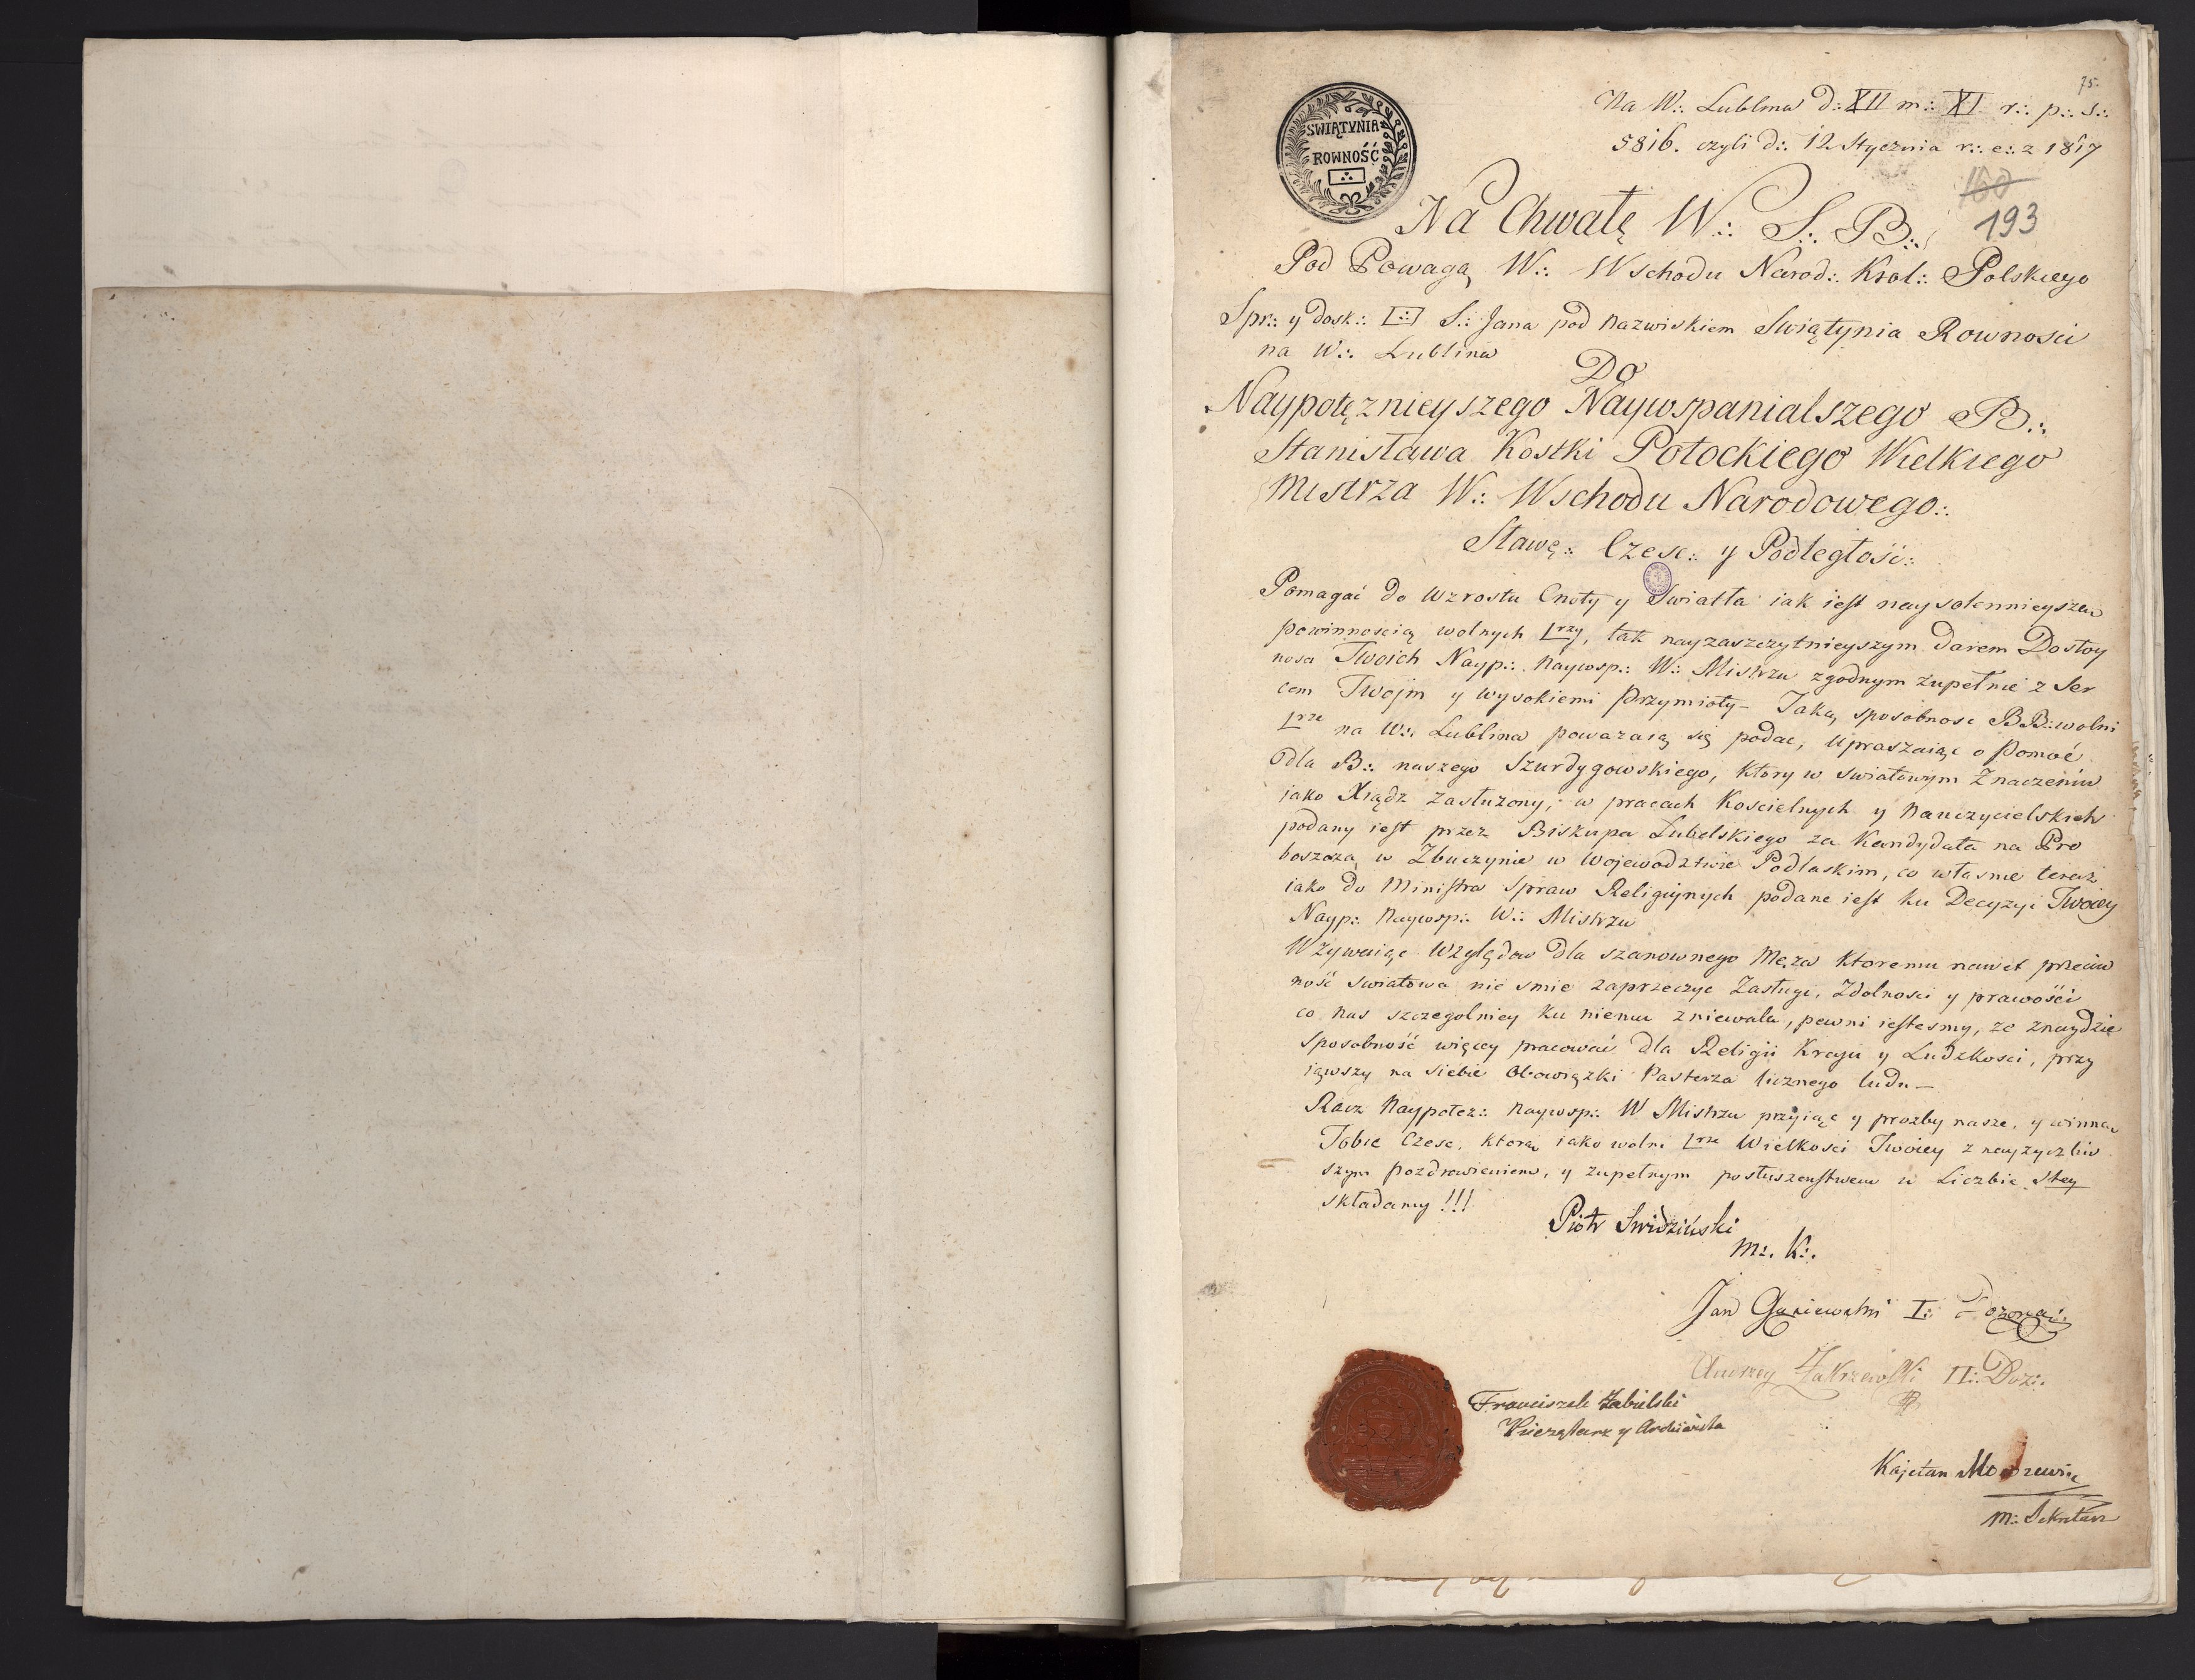 75.
Na W∴ Lublina D∴ XII m∴ XI r∴ p∴ s∴
5816. czyli d∴ 12 Stycznia r∴ e∴ z 1817
SWIĄTYNIA
ROWNOŚĆ
160
193
Na Chwałę W∴ S∴ B∴
Pod Powagą W∴ Wschodu Narod∴ Krol∴ Polskiego
Spr∴ y dosk∴ [∴] S∴ Jana pod nazwiskiem Swiątynia Rownosci
na W∴ Lublina
Do
Naypotęznieyszego Naywspanialszego B∴
Stanisława Kostki Potockiego Wielkiego
Mistrza W∴ Wschodu Narodowego∴
Sławę∴ Czesc∴ y Podległość∴
Pomagać do wzrostu Cnoty y Swiatła iak iest naysolennieyszą
powinnoscią wolnych Lrzy, tak nayzaszczytnieyszym darem Dostoy
nosci Twoich Nayp∴ Naywsp∴ W∴ Mistrzu zgodnym zupełnie z Ser
cem Twojm y wysokiemi Przymioty – Taką sposobnosc BB∴ wolni
Lrze na W∴ Lublina powazaią się podac, upraszaiąc o Pomoć
dla B∴ naszego Szurdygowskiego, ktory w swiatowym Znaczeniu
jako Xiądz zasłużony, w pracach Koscielnych y Nauczycielskich
podany iest przez Biskupa Lubelskiego za Kandydata na Pro
boszcza w Zbuczynie w Wojewodztwie Podlaskim, co własnie teraz
iako do Ministra Spraw Religijnych podane iest ku Decyzyi Twoiey
Nayp∴ Naywsp∴ W∴ Mistrzu
Wzywaiąc Względow dla szanownego Męza ktoremu nawet przeciw
ność swiatowa nie smie zaprzeczyc Zasługi, Zdolnosci y prawości
co nas szczegolniey ku niemu zniewala, pewni iestesmy, ze znaydzie
sposobność więcey pracować dla Religii Kraju y Ludzkosci, przy
iąwszy na siebie Obowiązki Pasterza licznego ludu –
Racz Naypotęz∴ Naywsp∴ W Mistrzu przyiąc y prozby nasze, y winną
Tobie Czesc, ktorą iako wolni Lrze Wielkosci Twoiey z nayzyczliw
szym pozdrowieniem, y zupełnym posłuszenstwem w Liczbie Stey
składamy !!!
Piotr Swidziński
M∴ K∴
Jan I∴
Andrzey Zakrzewski II∴ Doz∴
Franciszek Zabielski
Pieczętarz y Archiwista
Kajetan
M∴ Sekretarz